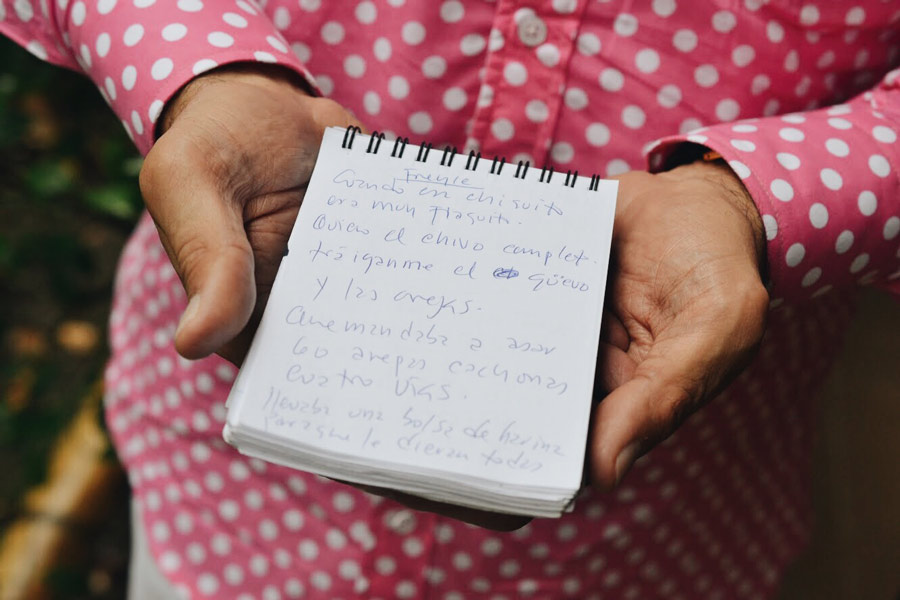 Frente
Cuando era chiquito
era muy flaquito.
Quiero el chivo complet.
tráiganme el güevo
y las orejas.
Que mandaba a asar
60 arepas cachonas
cuatro vigas.
llevaba una bolsa de harina
para que le dieran todas